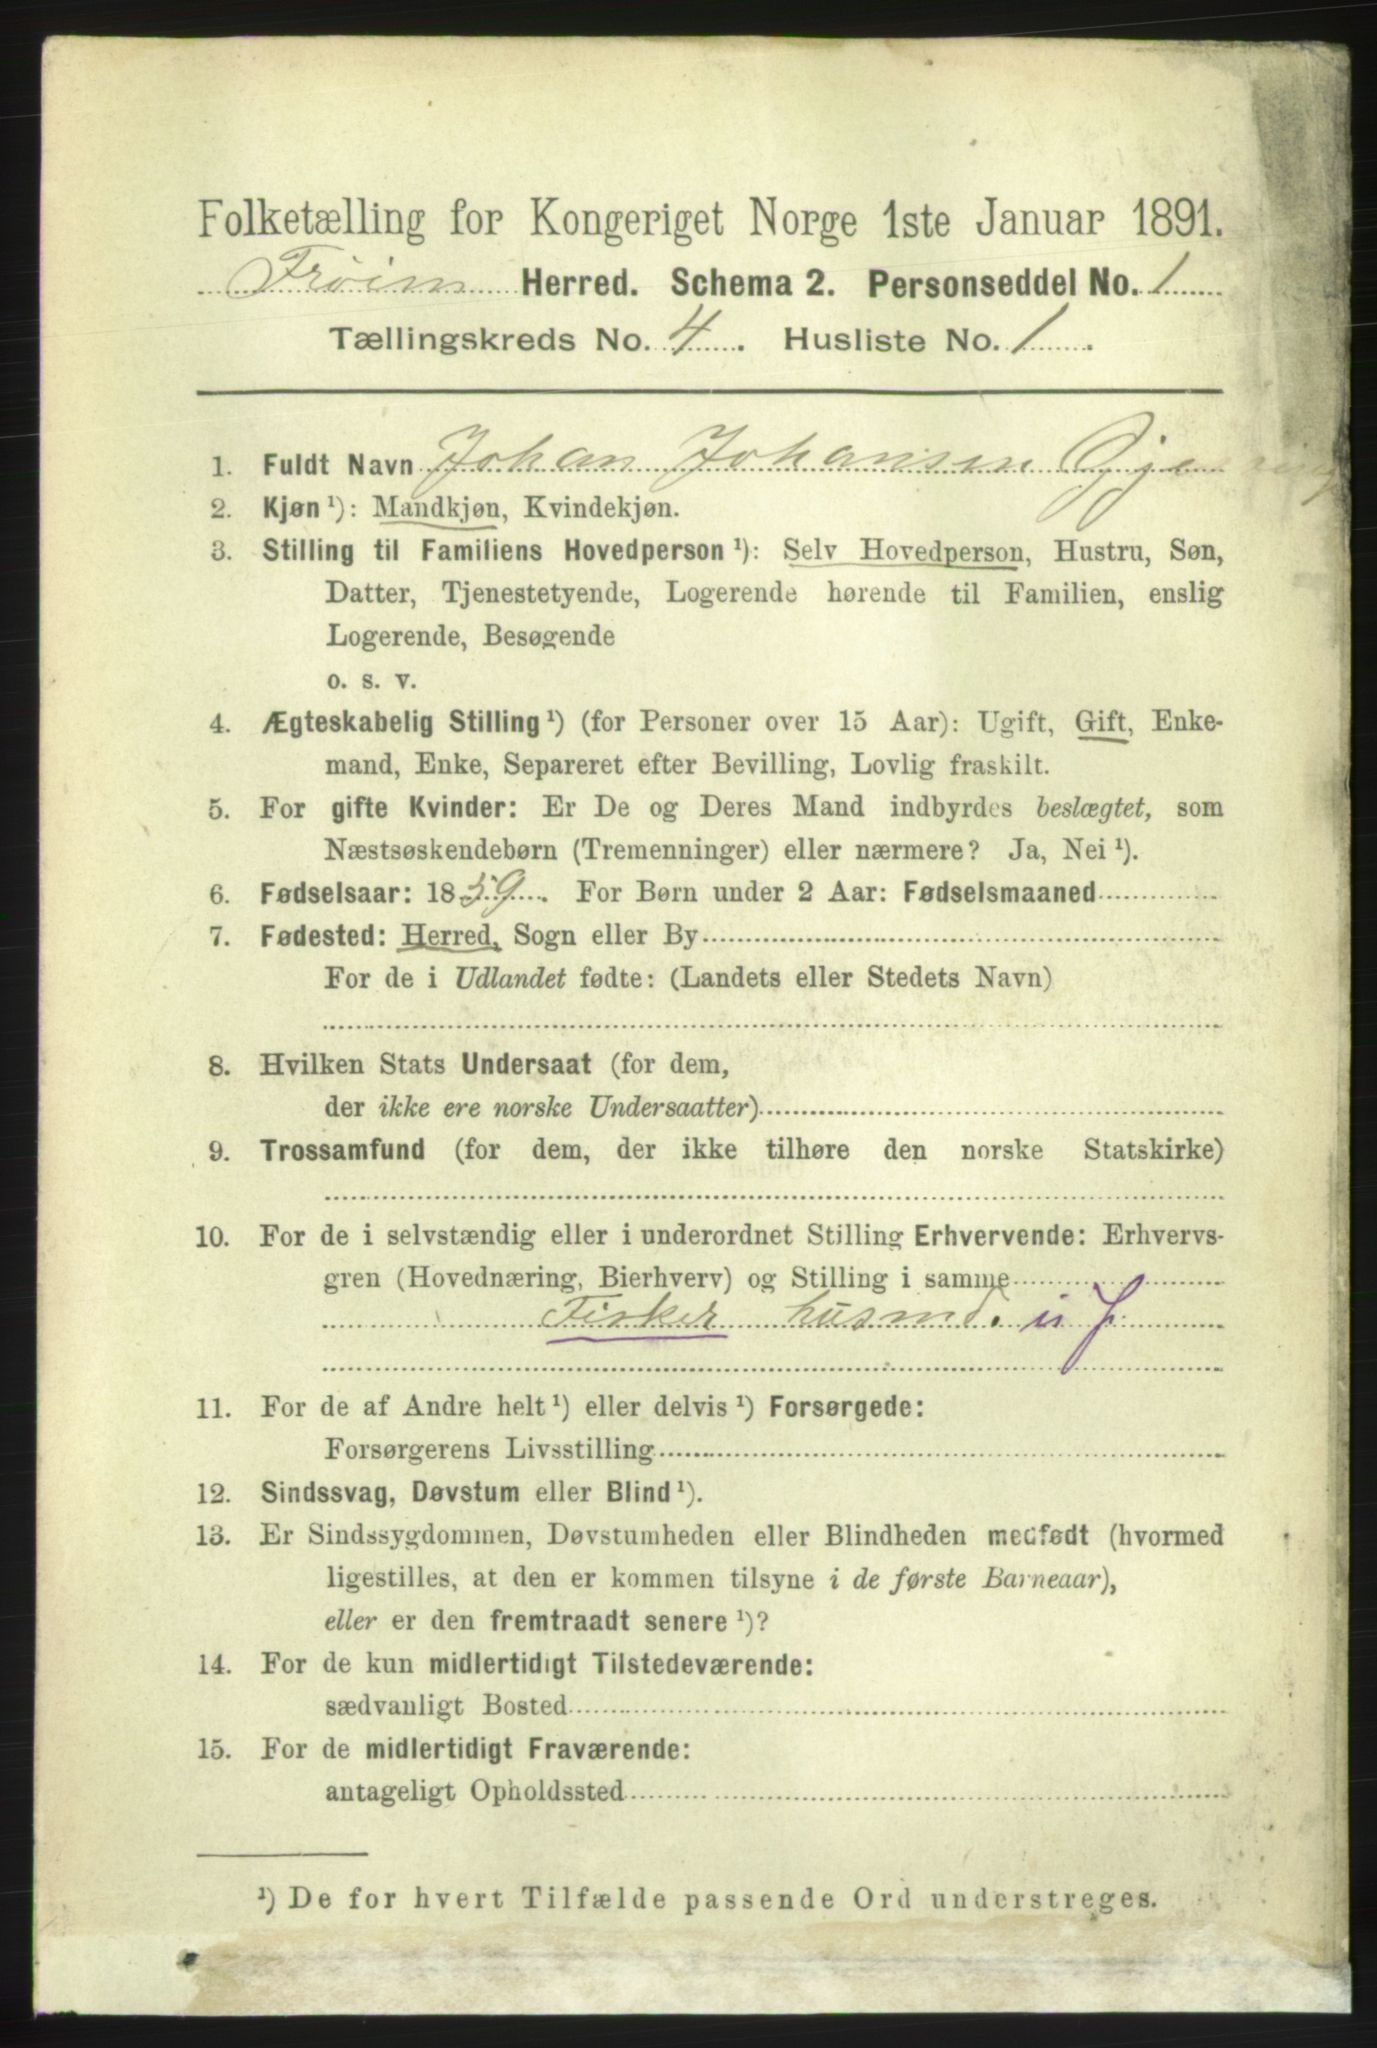 Folketælling for Kongeriget Norge 1ste Januar 1891.
Frøien Herred. Schema 2. Personseddel No. 1
Tællingskreds No. 4. Husliste No. 1.
1. Fuldt Navn Johan Johansen
2. Kjøn ¹): Mandkjøn, Kvindekjøn.
3. Stilling til Familiens Hovedperson ¹): Selv Hovedperson, Hustru, Søn,
Datter, Tjenestetyende, Logerende hørende til Familien, enslig
Logerende, Besøgende
o. s. v.
4. Ægteskabelig Stilling ¹) (for Personer over 15 Aar): Ugift, Gift, Enke-
mand, Enke, Separeret efter Bevilling, Lovlig fraskilt.
5. For gifte Kvinder: Er De og Deres Mand indbyrdes beslægtet, som
Næstsøskendebørn (Tremenninger) eller nærmere? Ja, Nei ¹).
6. Fødselsaar: 1859. For Børn under 2 Aar: Fødselsmaaned
7. Fødested: Herred, Sogn eller By
For de i Udlandet fødte: (Landets eller Stedets Navn)
8. Hvilken Stats Undersaat (for dem,
der ikke ere norske Undersaatter)
9. Trossamfund (for dem, der ikke tilhøre den norske Statskirke)
10. For de i selvstændig eller i underordnet Stilling Erhvervende: Erhvervs-
gren (Hovednæring, Bierhverv) og Stilling i samme
Fisker husmd.
11. For de af Andre helt ¹) eller delvis ¹) Forsørgede:
Forsørgerens Livsstilling
12. Sindssvag, Døvstum eller Blind ¹).
13. Er Sindssygdommen, Døvstumheden eller Blindheden medfødt (hvormed
ligestilles, at den er kommen tilsyne i de første Barneaar),
eller er den fremtraadt senere ¹)?
14. For de kun midlertidigt Tilstedeværende:
sædvanligt Bosted
15. For de midlertidigt Fraværende:
antageligt Opholdssted
¹) De for hvert Tilfælde passende Ord understreges.